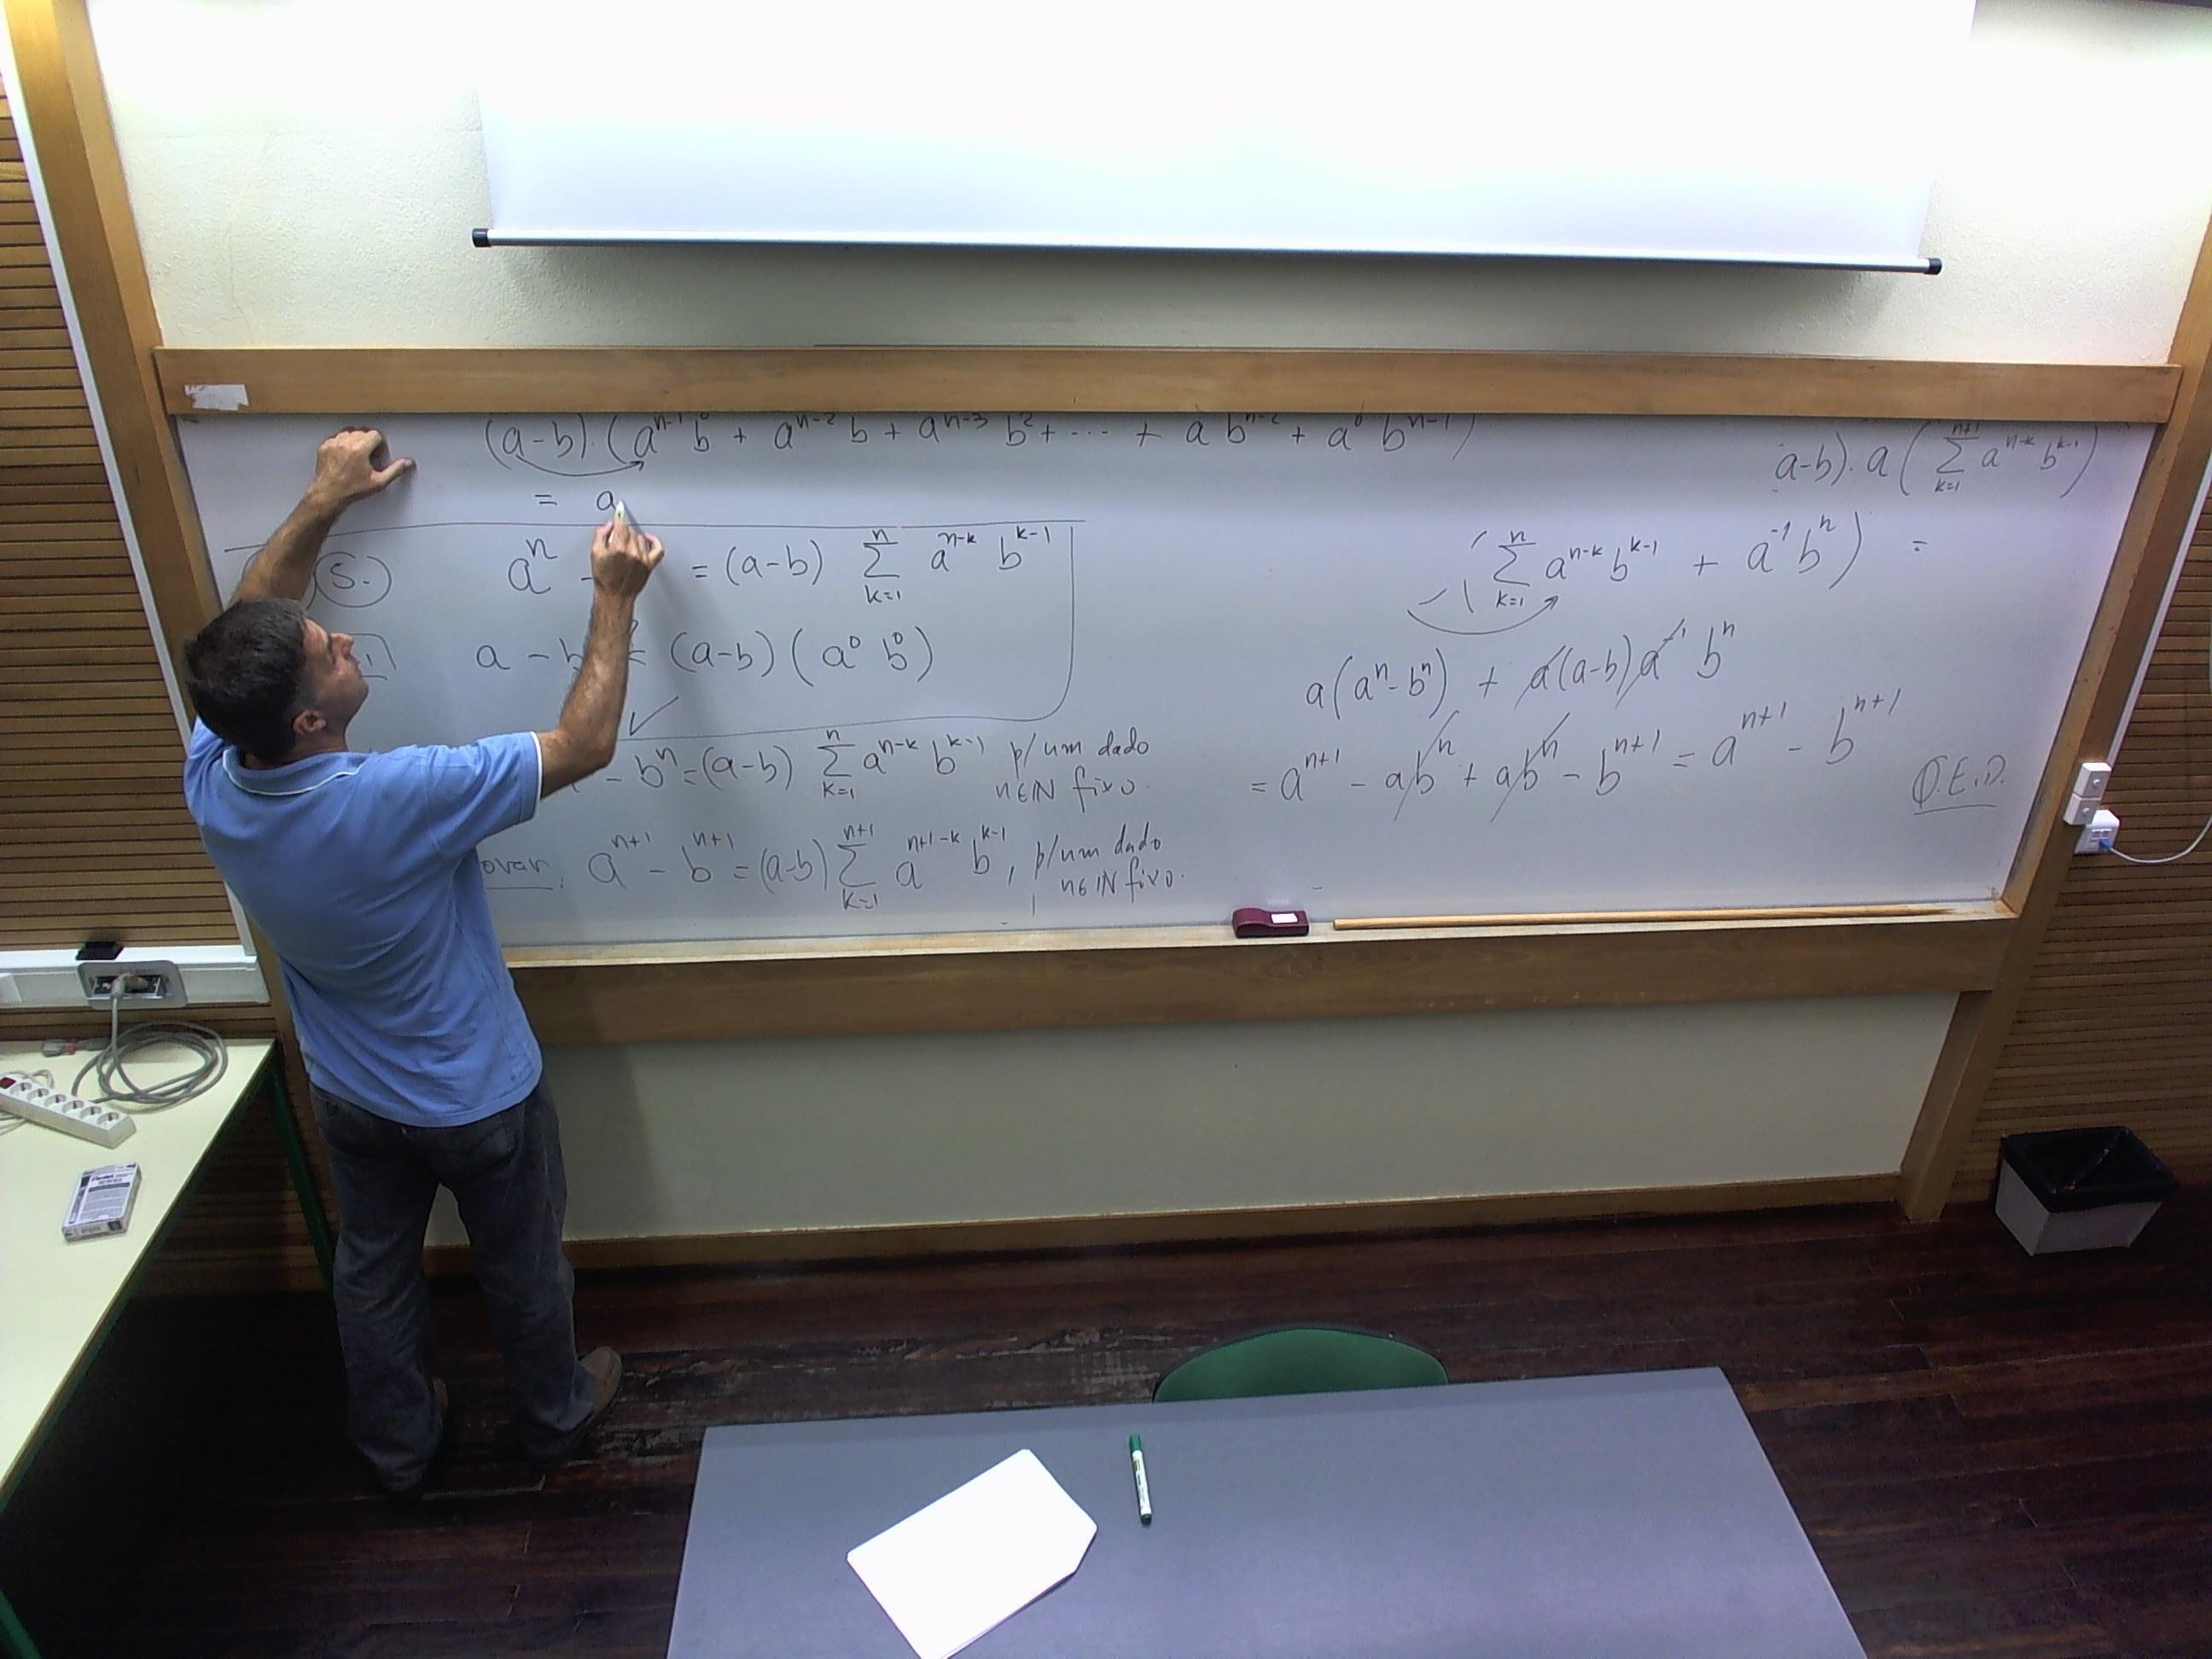 (a-b).(aⁿ⁻¹b⁰ + aⁿ⁻²b + aⁿ⁻³b² + ··· + abⁿ⁻² + a⁰bⁿ⁻¹)
= a
S. aⁿ - = (a-b) ∑ₖ₌₁ⁿ aⁿ⁻ᵏ bᵏ⁻¹
a - b = (a-b)(a⁰ b⁰)
✓
- bⁿ = (a-b) ∑ₖ₌₁ⁿ aⁿ⁻ᵏ bᵏ⁻¹ p/um dado
n∈ℕ fixo.
aⁿ⁺¹ - bⁿ⁺¹ = (a-b) ∑ₖ₌₁ⁿ⁺¹ aⁿ⁺¹⁻ᵏ bᵏ⁻¹, p/um dado
n∈ℕ fixo.
a-b).a(∑ₖ₌₁ⁿ⁺¹ aⁿ⁻ᵏ bᵏ⁻¹)
(∑ₖ₌₁ⁿ aⁿ⁻ᵏ bᵏ⁻¹ + a⁻¹bⁿ) =
a(aⁿ-bⁿ) + a(a-b)a⁻¹ bⁿ
= aⁿ⁺¹ - abⁿ + abⁿ - bⁿ⁺¹ = aⁿ⁺¹ - bⁿ⁺¹
Q.E.D.